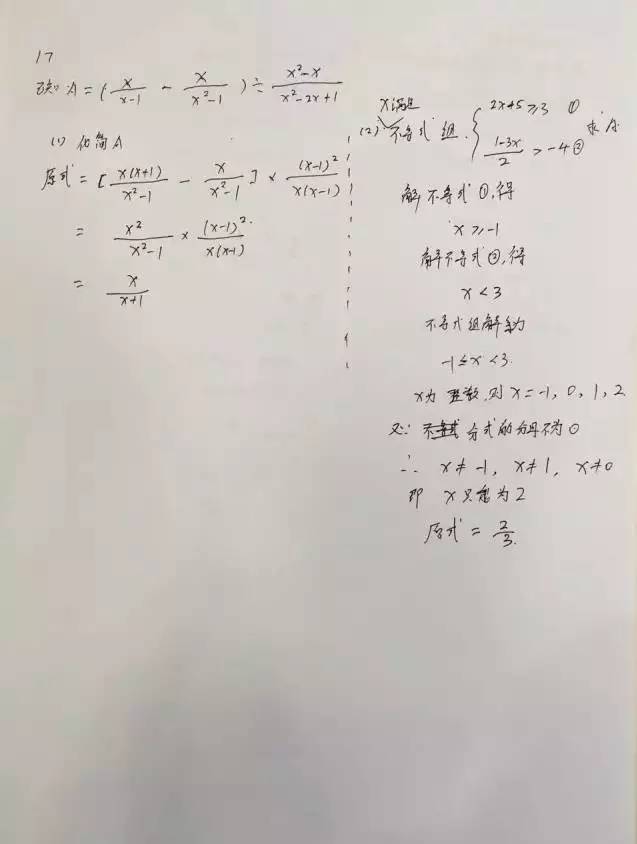 17
已知:A=(x/(x-1) - x/(x²-1))÷(x²-x)/(x²-2x+1)
(1) 化简A
原式=[x(x+1)/(x²-1) - x/(x²-1)]×(x-1)²/(x(x-1))
= x²/(x²-1)×(x-1)²/(x(x-1))
= x/(x+1)
x满足
(2) 不等式组. { 2x+5≥3 ① 求A
(1-3x)/2 > -4 ②
解不等式①,得
x≥-1
解不等式②,得
x<3
不等式组解为
-1≤x<3.
x为整数,则x=-1,0,1,2
又∵ 分式的分母不为0
∴ x≠-1, x≠1, x≠0
即 x只能为2
原式=2/3.